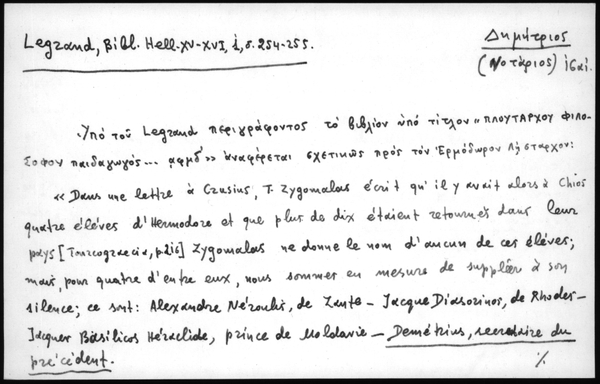 Legrand, Bibl. Hell. XV-XVI, i, σ. 254-255.
Δημήτριος
(Νοτάριος) ιςαι.
Ὑπό τοῦ Legrand περιγράφοντος τό βιβλίον ὑπό τίτλον « ΠΛΟΥΤΑΡΧΟΥ ΦΙΛΟ-
ΣΟΦΟΥ παιδαγωγός... αφμδ´ » ἀναφέρεται σχετικῶς πρός τόν Ἑρμόδωρον Λήσταρχον:
« Dans une lettre à Crusius, T. Zygomalas écrit qu'il y avait alors à Chios
quatre élèves d'Hermodore et que plus de dix étaient retournés dans leur
pays [Turcograecia, p.216] Zygomalas ne donne le nom d'aucun de ces élèves;
mais, pour quatre d'entre eux, nous sommes en mesure de suppléer à son
silence; ce sont: Alexandre Néroulis, de Zante - Jacque Diassorinos, de Rhodes -
Jacques Basilicos Héraclide, prince de Moldavie - Démétrius, secrétaire du
précédent.
%